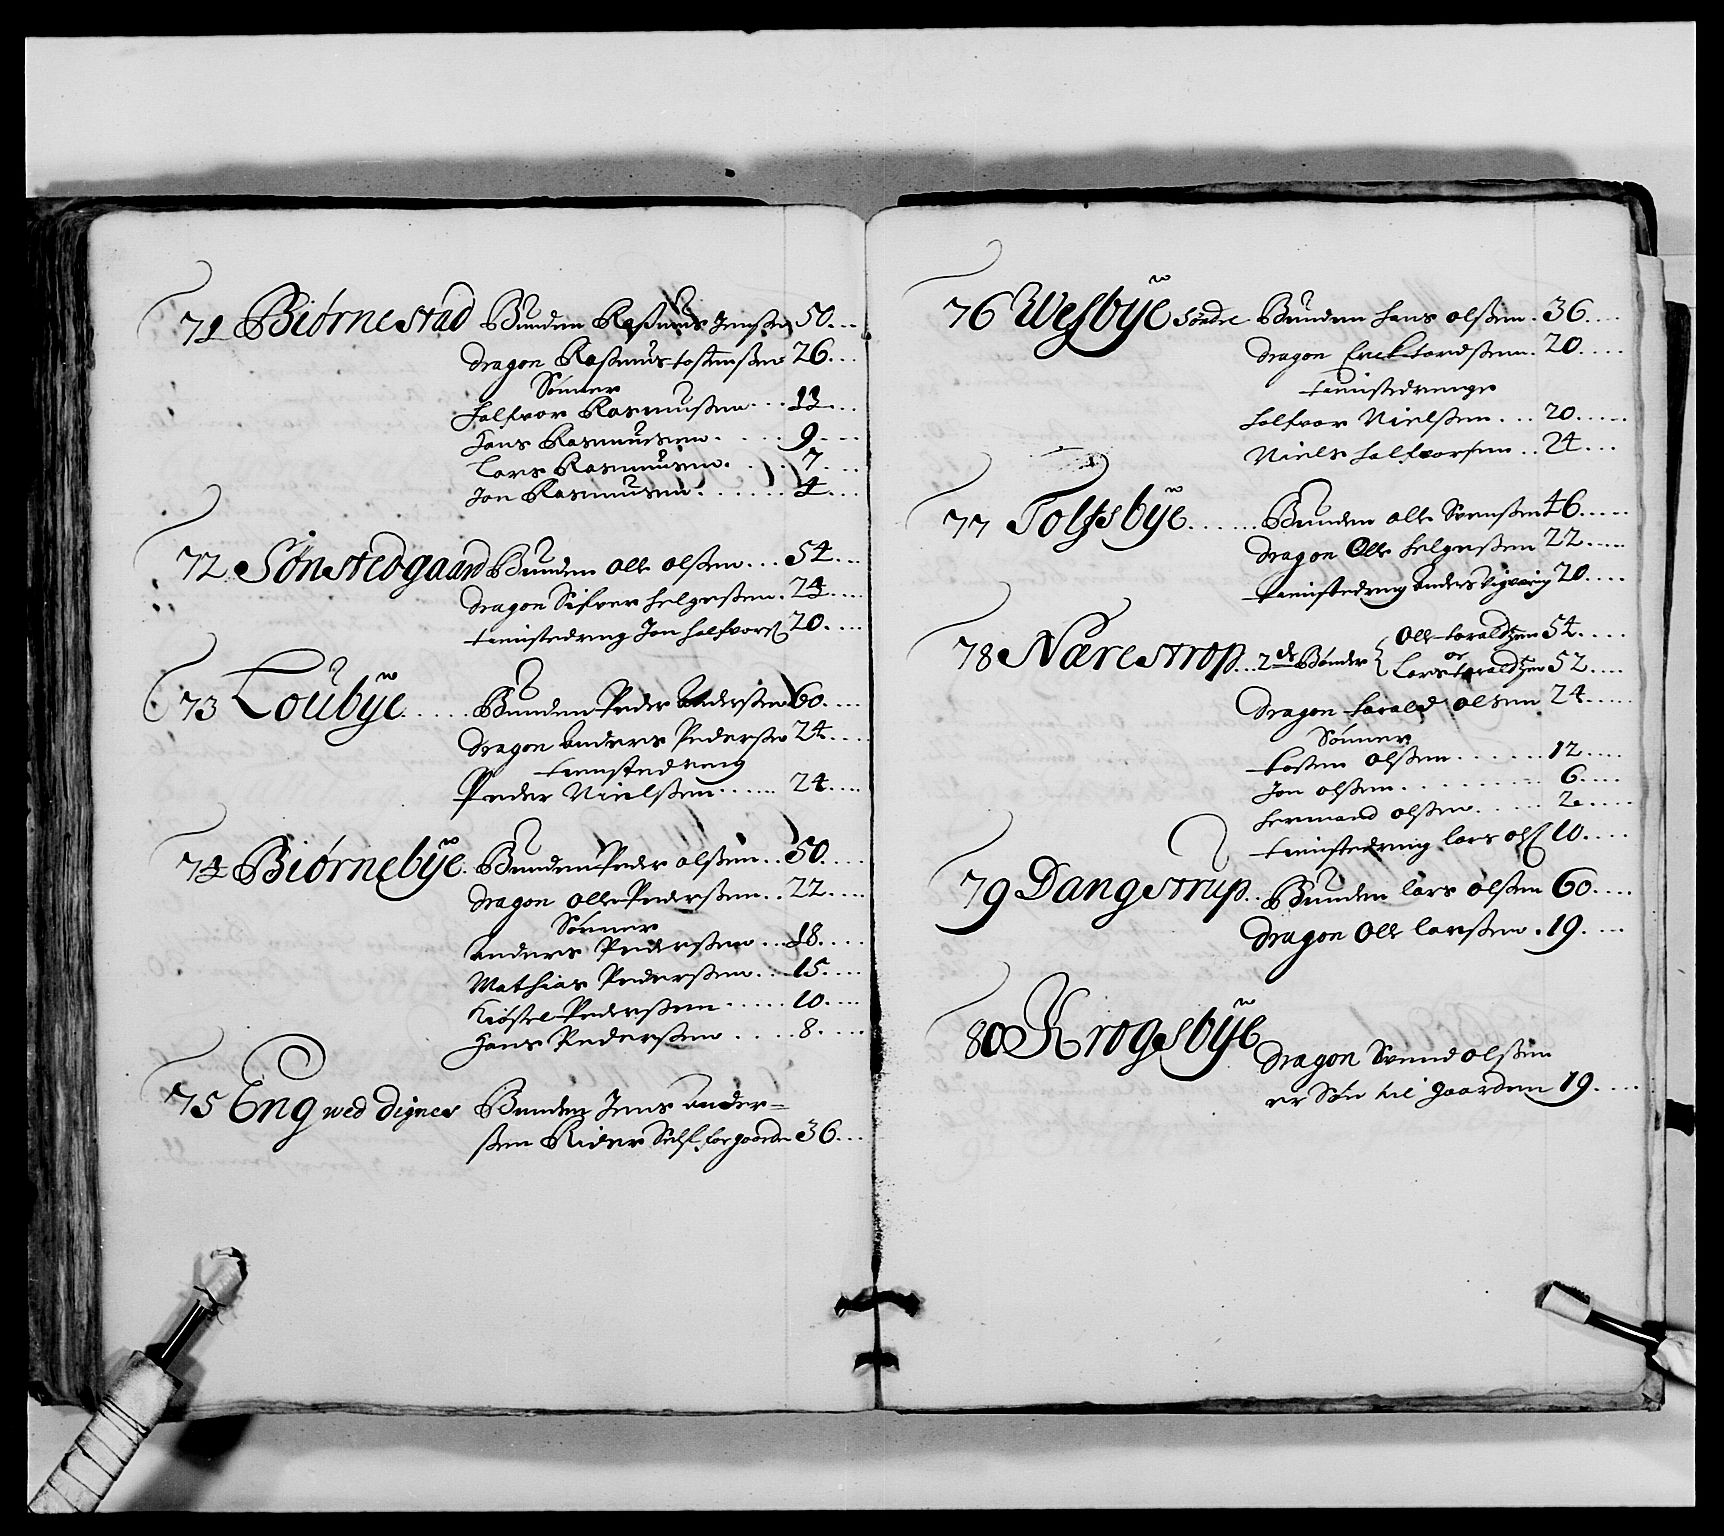 71 Biørnestad Bunden Rasmus Jenssen 50...
dragon Rasmus tostenssen 26...
Sønner
halfvor Rasmussen ... 13...
Hans Rasmussen ..... 9...
Lars Rasmussen ..... 7...
Jon Rasmussen ...... 4...
72 Sønstedgaard Bunden Olle olssen ... 54...
dragon Sifver helgessen . 24....
tienistedreng Jon halfvors 20....
73 Loubÿe ...... Bunden Peder Anderssen 60....
dragon Anders Pederssen 24....
tienistedreng
Peder Nielssen ...... 24....
74 Biørnebÿe. Bunden Peder olssen .. 50....
dragon olle Pederssen .. 22....
Sønner
Anders Pederssen ... 18....
Mathias Pederssen ... 15....
Kiøstel Pederssen ..... 10....
Hans Pederssen ..... 8....
75 Eng wed Dignes Bunden Jens Ander=
ssen Rider Self for gaarden 36...
76 Wesbÿe Søndre Bunden hans olssen . 36....
dragon Erick tordssen. 20.....
tienistedrenge
halfvor Nielssen ... 20.....
Niels halfvorsen .. 24....
77 Tolfsbÿe ...... Bunden olle Svenssen 46.....
dragon Olle helgessen 22.....
tienistedreng Anders Vigvorig 20....
78 Nærestrop... 2de Bønder { Olle toraldtzen 54....
or
Lars toraldtzen 52....
dragon harald olsen 24.....
Sønner
tosten olssen ....... 12....
Jon olssen ......... 6....
hermand olssen ..... 2.....
tienistedreng lars ols 10....
79 Dangstrup.. Bunden lars olssen 60....
dragon Olle larssen . 19....
80 Krogsbÿe
dragon Svend olssen
er Søn til gaarden 19....